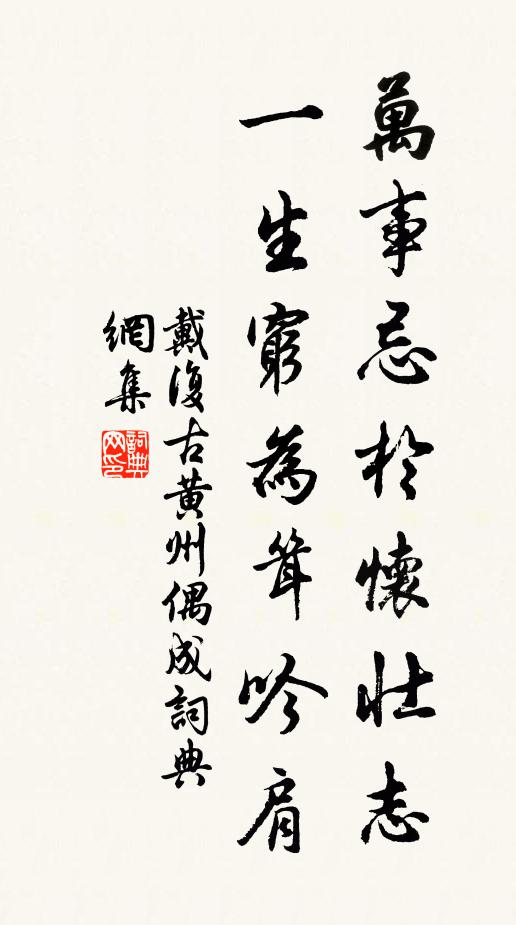 萬事忌於懷壯志
一生窮為耸吟肩
戴復古黄州偶成詞典
網集
詞典
网印